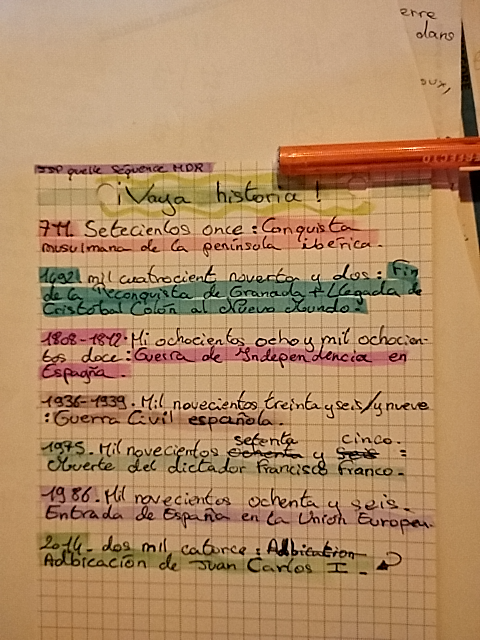 erre
dans
sux,
JSP quelle séquence MDR
¡Vaya historia !
711. Setecientos once : Conquista
musulmana de la península ibérica.
1492 mil cuatrocient noventa y dos : Fin
de la Reconquista de Granada + Llegada de
Cristobal Colón al Nuevo Mundo.
1808-1812. Mi ochocientos ocho y mil ochocien-
tos doce : Guerra de Independencia en
Espagña.
1936-1939. Mil novecientos treinta y seis/y nueve
: Guerra Civil española.
setenta cinco.
1975. Mil novecientos ochenta y seis =
Muerte del dictador Francisco Franco.
1986. Mil novecientos ochenta y seis.
Entrada de España en la Unión Europea.
2014. dos mil catorce : Adbication
Adbicación de Juan Carlos I.